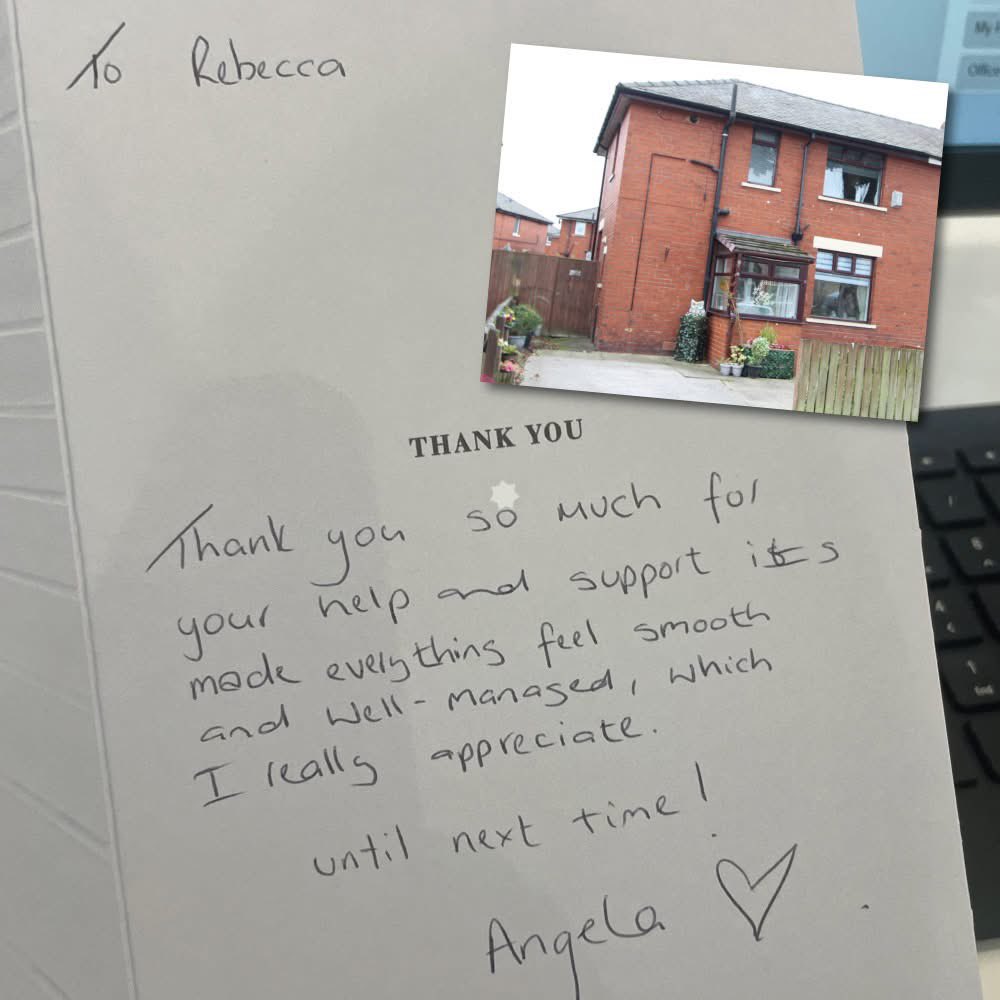 To Rebecca
THANK YOU
Thank you so much for
your help and support its
made everything feel smooth
and well-managed, which
I really appreciate.
until next time!
Angela